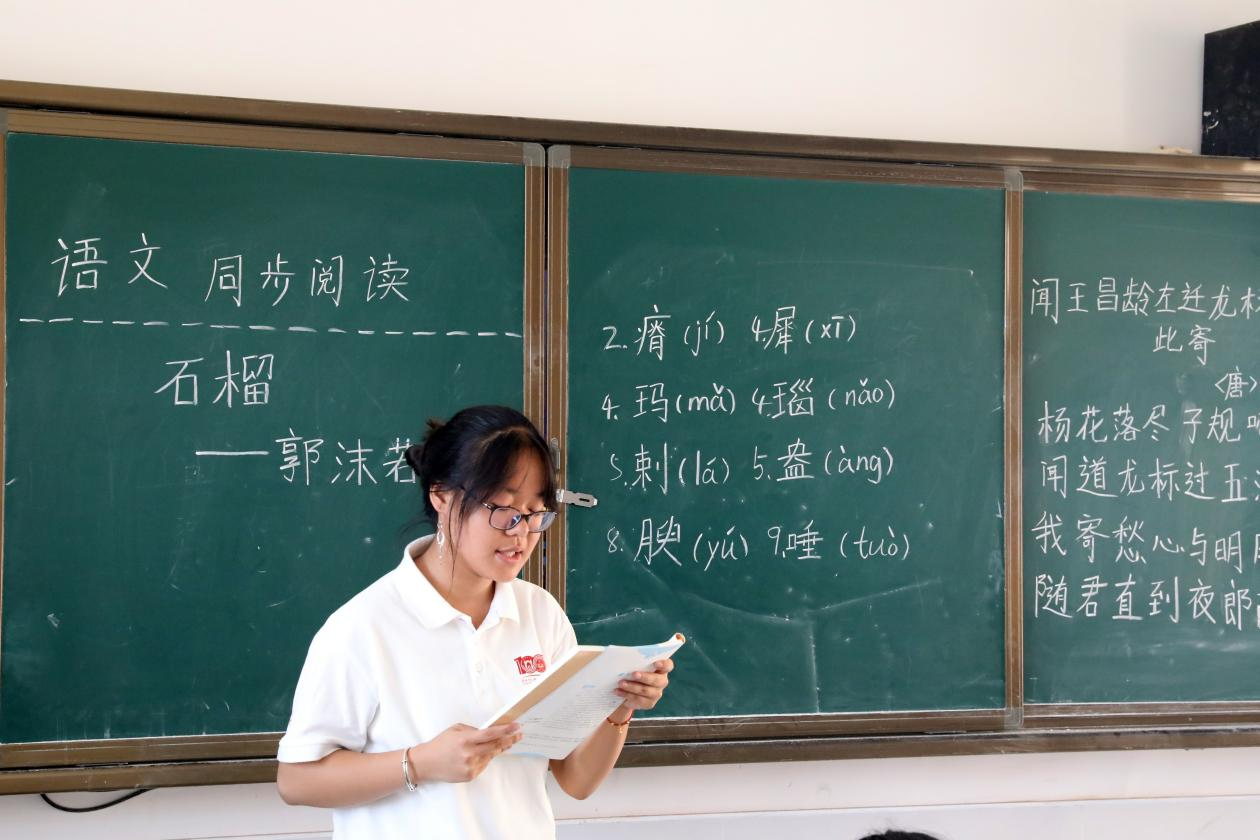 语文 同步阅读
石榴
——郭沫若
2.瘠(jí) 4.犀(xī)
4.玛(mǎ) 4.瑙(nǎo)
5.剌(lá) 5.盎(àng)
8.腴(yú) 9.唾(tuò)
闻王昌龄左迁龙
此寄
〈唐〉
杨花落尽子规
闻道龙标过五
我寄愁心与明
随君直到夜郎
100